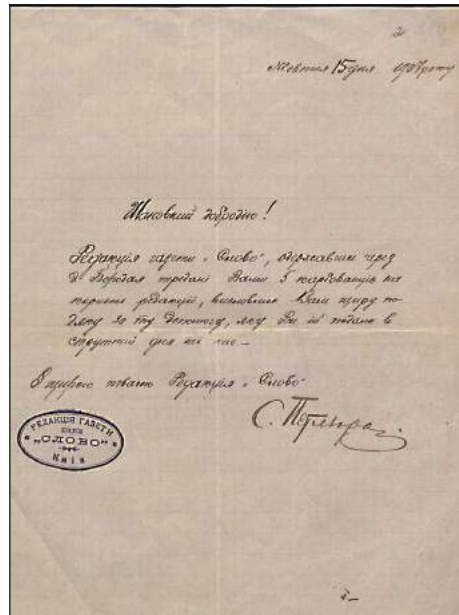 2
Жовтня 15 дня 1907 року
Шановний добродію!
Редакція газети „Слово", одержавши через
д. Бородая передані Вами 5 карбованців на
користь редакції, висловлює Вам щиру по-
дяку за ту допомогу, яку Ви їй подали в
скрутний для неї час.–
З щирою повагою Редакція „Слово"
С. Петлюра
РЕДАКЦІЯ ГАЗЕТИ
„СЛОВО"
Київ